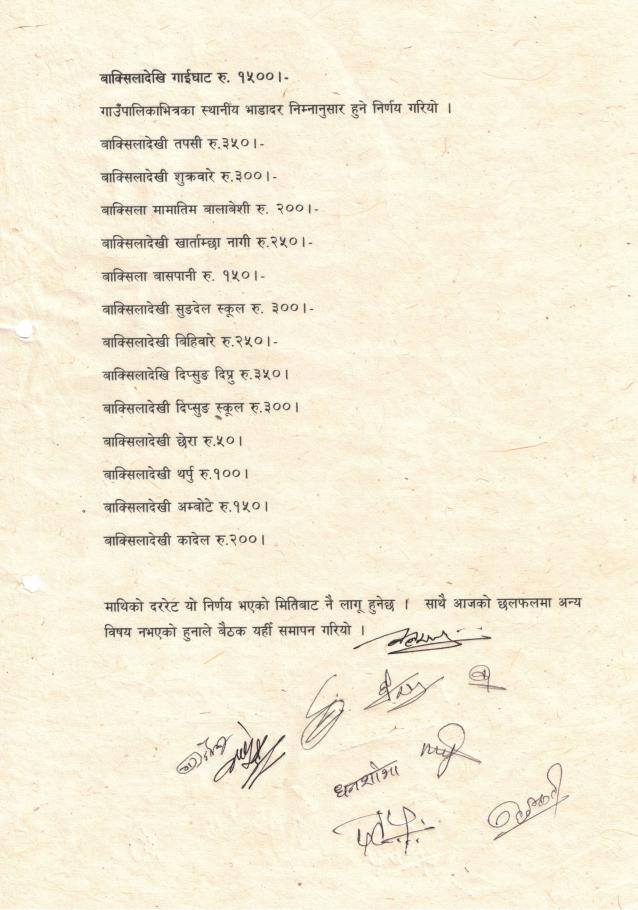 बाक्सिलादेखि गाईघाट रु. १५००।-
गाउँपालिकाभित्रका स्थानीय भाडादर निम्नानुसार हुने निर्णय गरियो ।
बाक्सिलादेखी तपसी रु.३५०।-
बाक्सिलादेखी शुक्रवारे रु.३००।-
बाक्सिला मामातिम बालाबेशी रु. २००।-
बाक्सिलादेखी खार्ताम्छा नागी रु.२५०।-
बाक्सिला बासपानी रु. १५०।-
बाक्सिलादेखी सुङदेल स्कूल रु. ३००।-
बाक्सिलादेखी विहिवारे रु.२५०।-
बाक्सिलादेखि दिप्सुङ दिप्रु रु.३५०।
बाक्सिलादेखी दिप्सुङ स्कूल रु.३००।
बाक्सिलादेखी छेरा रु.५०।
बाक्सिलादेखी थर्पु रु.१००।
बाक्सिलादेखी अम्बोटे रु.१५०।
बाक्सिलादेखी कादेल रु.२००।
माथिको दररेट यो निर्णय भएको मितिबाट नै लागू हुनेछ । साथै आजको छलफलमा अन्य
विषय नभएको हुनाले बैठक यहीँ समापन गरियो ।
धनशोभा